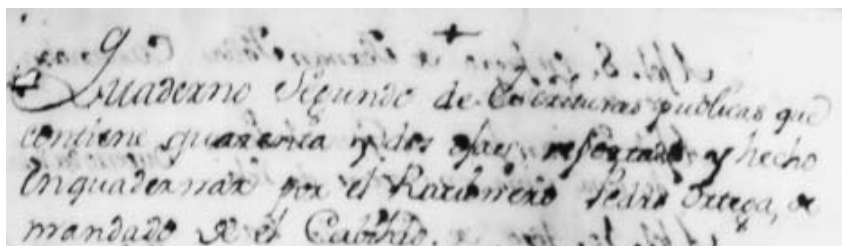 Quaderno Segundo de Escrituras publicas que
contiene quarenta y dos ojas, y hecho
Enquadernar por el Razionero Pedro Ortega, de
mandado de el Cabildo.